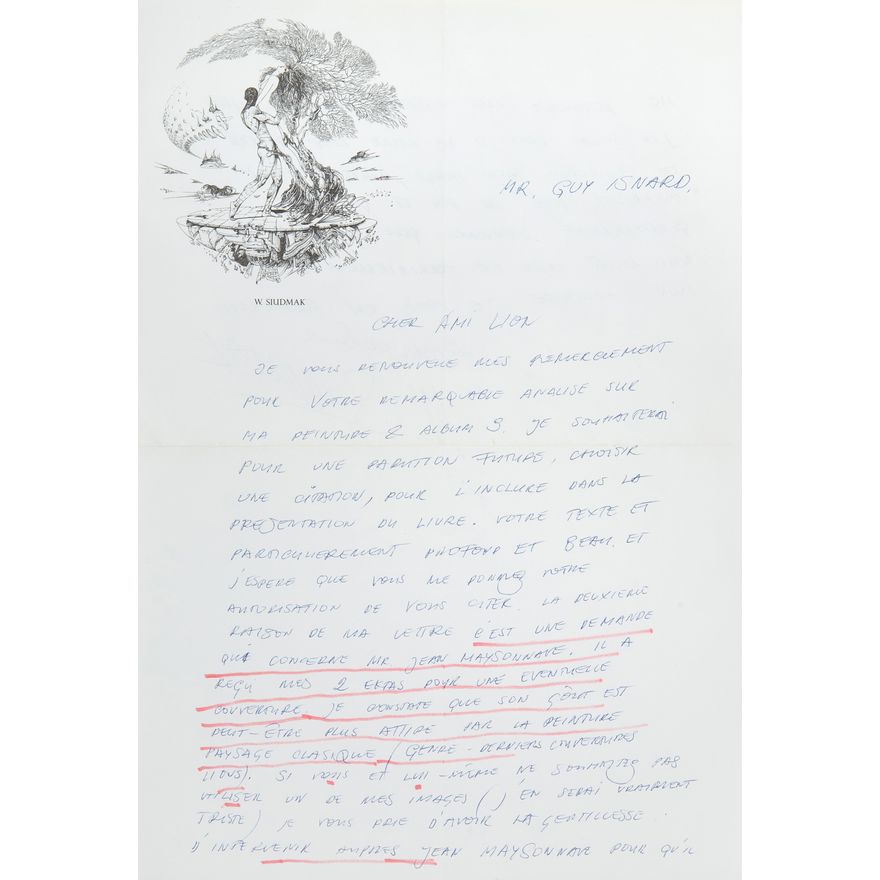 MR. GUY ISNARD.
W. SIUDMAK
CHER AMI LION
JE VOUS RENOUVELE MES REMERCIEMENT
POUR VOTRE REMARQUABLE ANALISE SUR
MA PEINTURE & ALBUM 3. JE SOUHAITERAI
POUR UNE PARUTION FUTURE, CHOISIR
UNE CITATION, POUR L'INCLURE DANS LA
PRESENTATION DU LIVRE. VOTRE TEXTE ET
PARTICULIEREMENT PROFOND ET BEAU. ET
J'ESPERE QUE VOUS ME DONNEZ VOTRE
AUTORISATION DE VOUS CITER. LA DEUXIEME
RAISON DE MA LETTRE C'EST UNE DEMANDE
QUI CONCERNE MR JEAN MAYSONNAVE. IL A
REÇU MES 2 EKTAS POUR UNE EVENTUELLE
COUVERTURE. JE CONSTATE QUE SON GÔUT EST
PEUT-ÊTRE PLUS ATTIRE PAR LA PEINTURE
PAYSAGE CLASIQUE (GENRE-DERNIERS COUVERTURES
LIONS). SI VOUS ET LUI-MÊME NE SOUHAITEZ PAS
UTILISER UN DE MES IMAGES (J'EN SERAI VRAIMENT
TRISTE) JE VOUS PRIE D'AVOIR LA GENTILLESSE
D'INTERVENIR AUPRES JEAN MAYSONNAVE POUR QU'IL